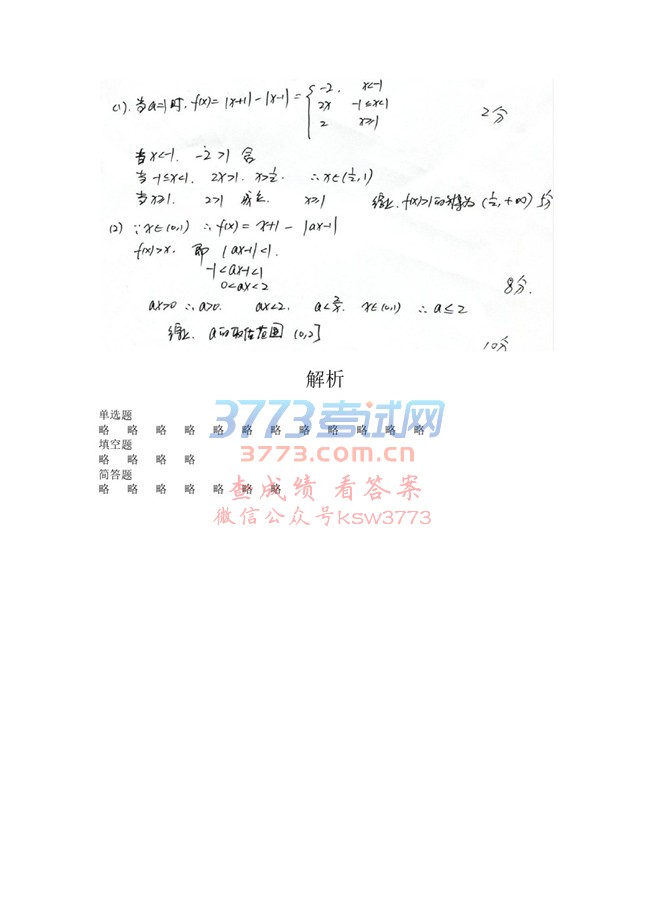 (1). 当a=1时, f(x)= |x+1| - |x-1| = { -2, x<-1
2x -1≤x<1
2 x≥1
2分
当x<-1, -2>1 舍
当-1≤x<1, 2x>1, x>1/2. ∴x∈(1/2,1)
当x≥1, 2>1 成立 x≥1 综上, f(x)>1的解集为 (1/2, +∞) 5分
(2) ∵x∈(0,1) ∴f(x)= x+1 - |ax-1|
f(x)>x, 即 |ax-1|<1.
-1<ax-1<1
0<ax<2 8分.
ax>0 ∴a>0. ax<2, a<2/x. x∈(0,1) ∴a≤2
综上, a的取值范围 (0,2]
10分
解析
单选题
略 略 略 略 略 略 略 略 略 略 略 略
填空题
略 略 略 略
简答题
略 略 略 略 略 略 略
3773考试网
3773.com.cn
查成绩 看答案
微信公众号ksw3773